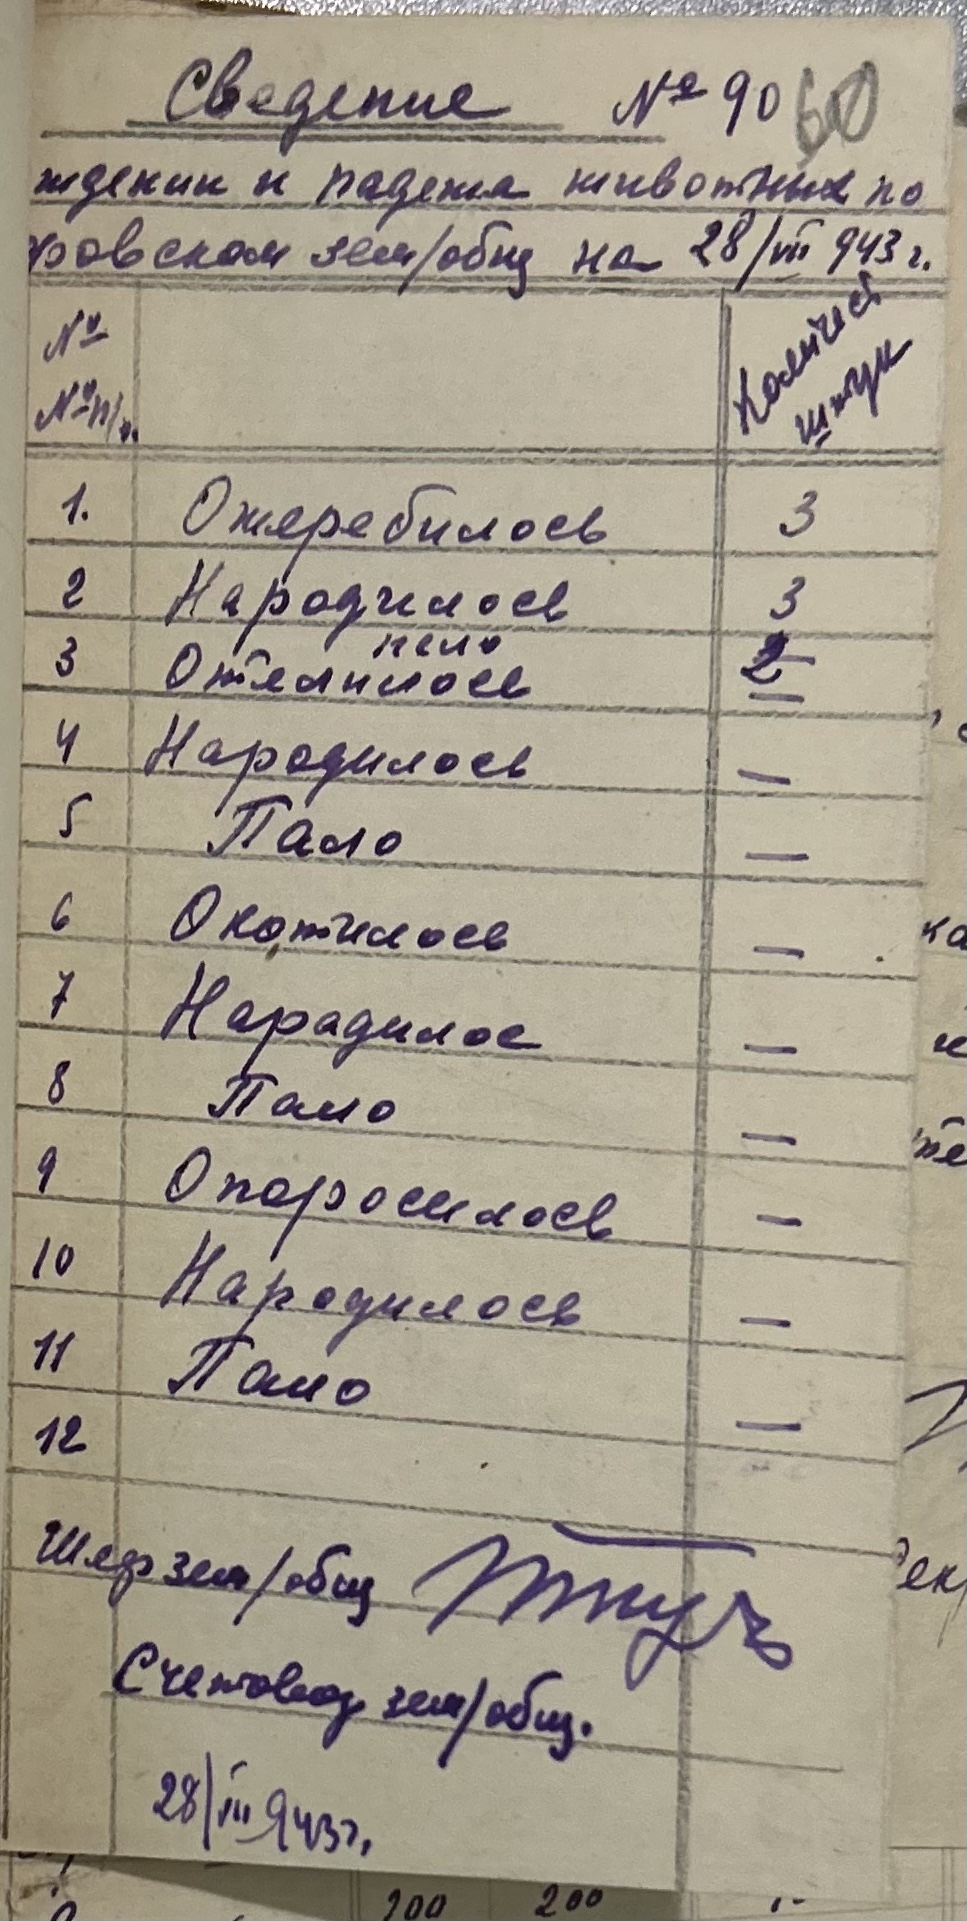 Сведение № 90 60
ждении и падежа животных по
ровском зем/общ на 28/III 943 г.
№ Количест
№ п/п. штук
1. Ожеребилось 3
2 Народилось 3
пало
3 Отелилось 2 —
4 Народилось —
5 Пало —
6 Окотилось —
7 Нарадилос —
8 Пало —
9 Опоросилось —
10 Народилось —
11 Пало —
12
Шеф зем/общ
Счетовод зем/общ.
28/III 943 г.
200 200